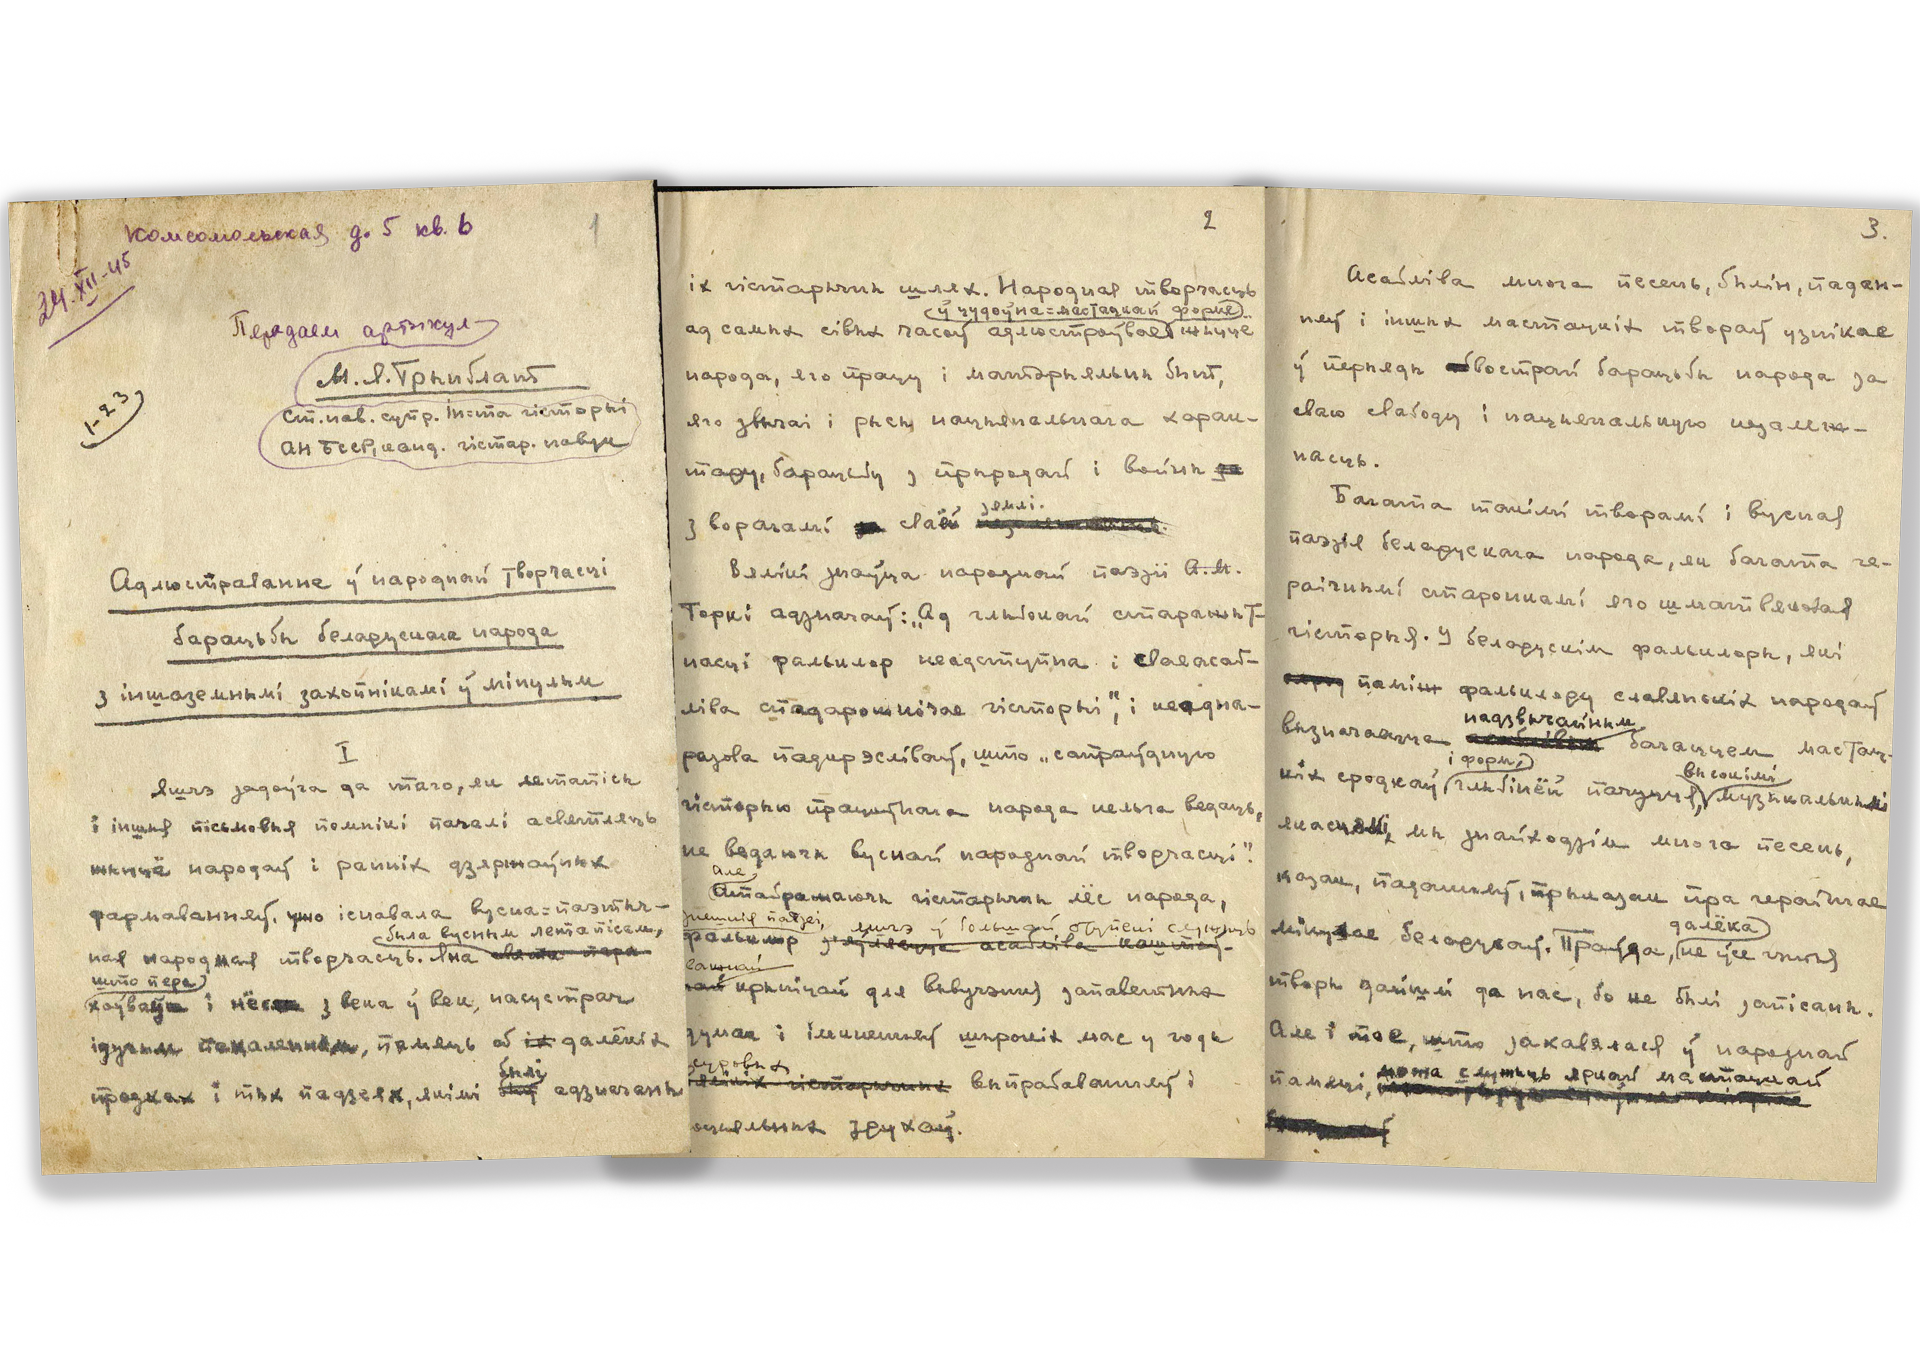 Комсомольская д. 5 кв. 6
1
24.XII-45
Передаем артыкул
М. Я. Грынблат
1-23
ст. нав. супр. Ін=та гісторыі
АН БССР, канд. гістар. навук
Адлюстраванне ў народнай творчасці
барацьбы беларускага народа
з іншаземнымі захопнікамі ў мінулым
I
Яшчэ задоўга да таго, як летапісы
і іншыя пісьмовыя помнікі пачалі асвятляць
жыццё народаў і ранніх дзяржаўных
фармаванняў, існавала вусна=паэтыч-
была вусным летапісам,
ная народная творчасць. Яна
што пера
хоўвала і з века ў век, насустрач
ідучым пакаленням, памяць аб іх далёкіх
былі
продках і тых падзеях, якімі адзначаны
2
іх гістарычны шлях. Народная творчасць
ў чудоўна=мастацкай форме
ад самых сівых часоў адлюстроўвае жыццё
народа, яго працу і матэрыяльны быт,
яго звычаі і рысы нацыянальнага харак-
тару, барацьбу з прыродай і войны за
землі.
з ворагамі сваёй
Вялікі знаўца народнай паэзіі А. М.
Горкі адзначаў: „Ад глыбокай старажыт-
насці фальклор неадступна і своеасаб-
ліва спадарожнічае гісторыі", і неадна-
разова падкрэсліваў, што „сапраўдную
гісторыю працоўнага народа нельга ведаць,
не ведаючы вуснай народнай творчасці".
Але
Адлюстроўваючы гістарычны лёс народа,
яшчэ ў большай ступені служыць
фальклор з'яўляецца асабліва каштоў-
важнай
най крыніцай для вывучэння запаветных
думак і імкненняў шырокіх мас у годы
суровых
гістарычных выпрабаванняў і
зрухаў.
3.
Асабліва многа песень, былін, падан-
няў і іншых мастацкіх твораў узнікае
ў перыяды вострай барацьбы народа за
сваю свабоду і нацыянальную незалеж-
насць.
Багата такімі творамі і вусная
паэзія беларускага народа, як багата ге-
раічнымі старонкамі яго шматвяковая
гісторыя. У беларускім фальклоры, які
паміж фальклору славянскіх народаў
надзвычайным
вызначаецца багаццем мастац-
і форм,
кіх сродкаў, глыбінёй пачуцця,
высокімі
музыкальнымі
якасцямі, мы знаходзім многа песень,
казак, паданняў, прыказак пра гераічнае
далёка
мінулае беларусаў. Праўда, не ўсе гэтыя
творы дайшлі да нас, бо не былі запісаны.
Але і тое, што захавалася ў народнай
можа служыць яркай мастацкай
памяці,